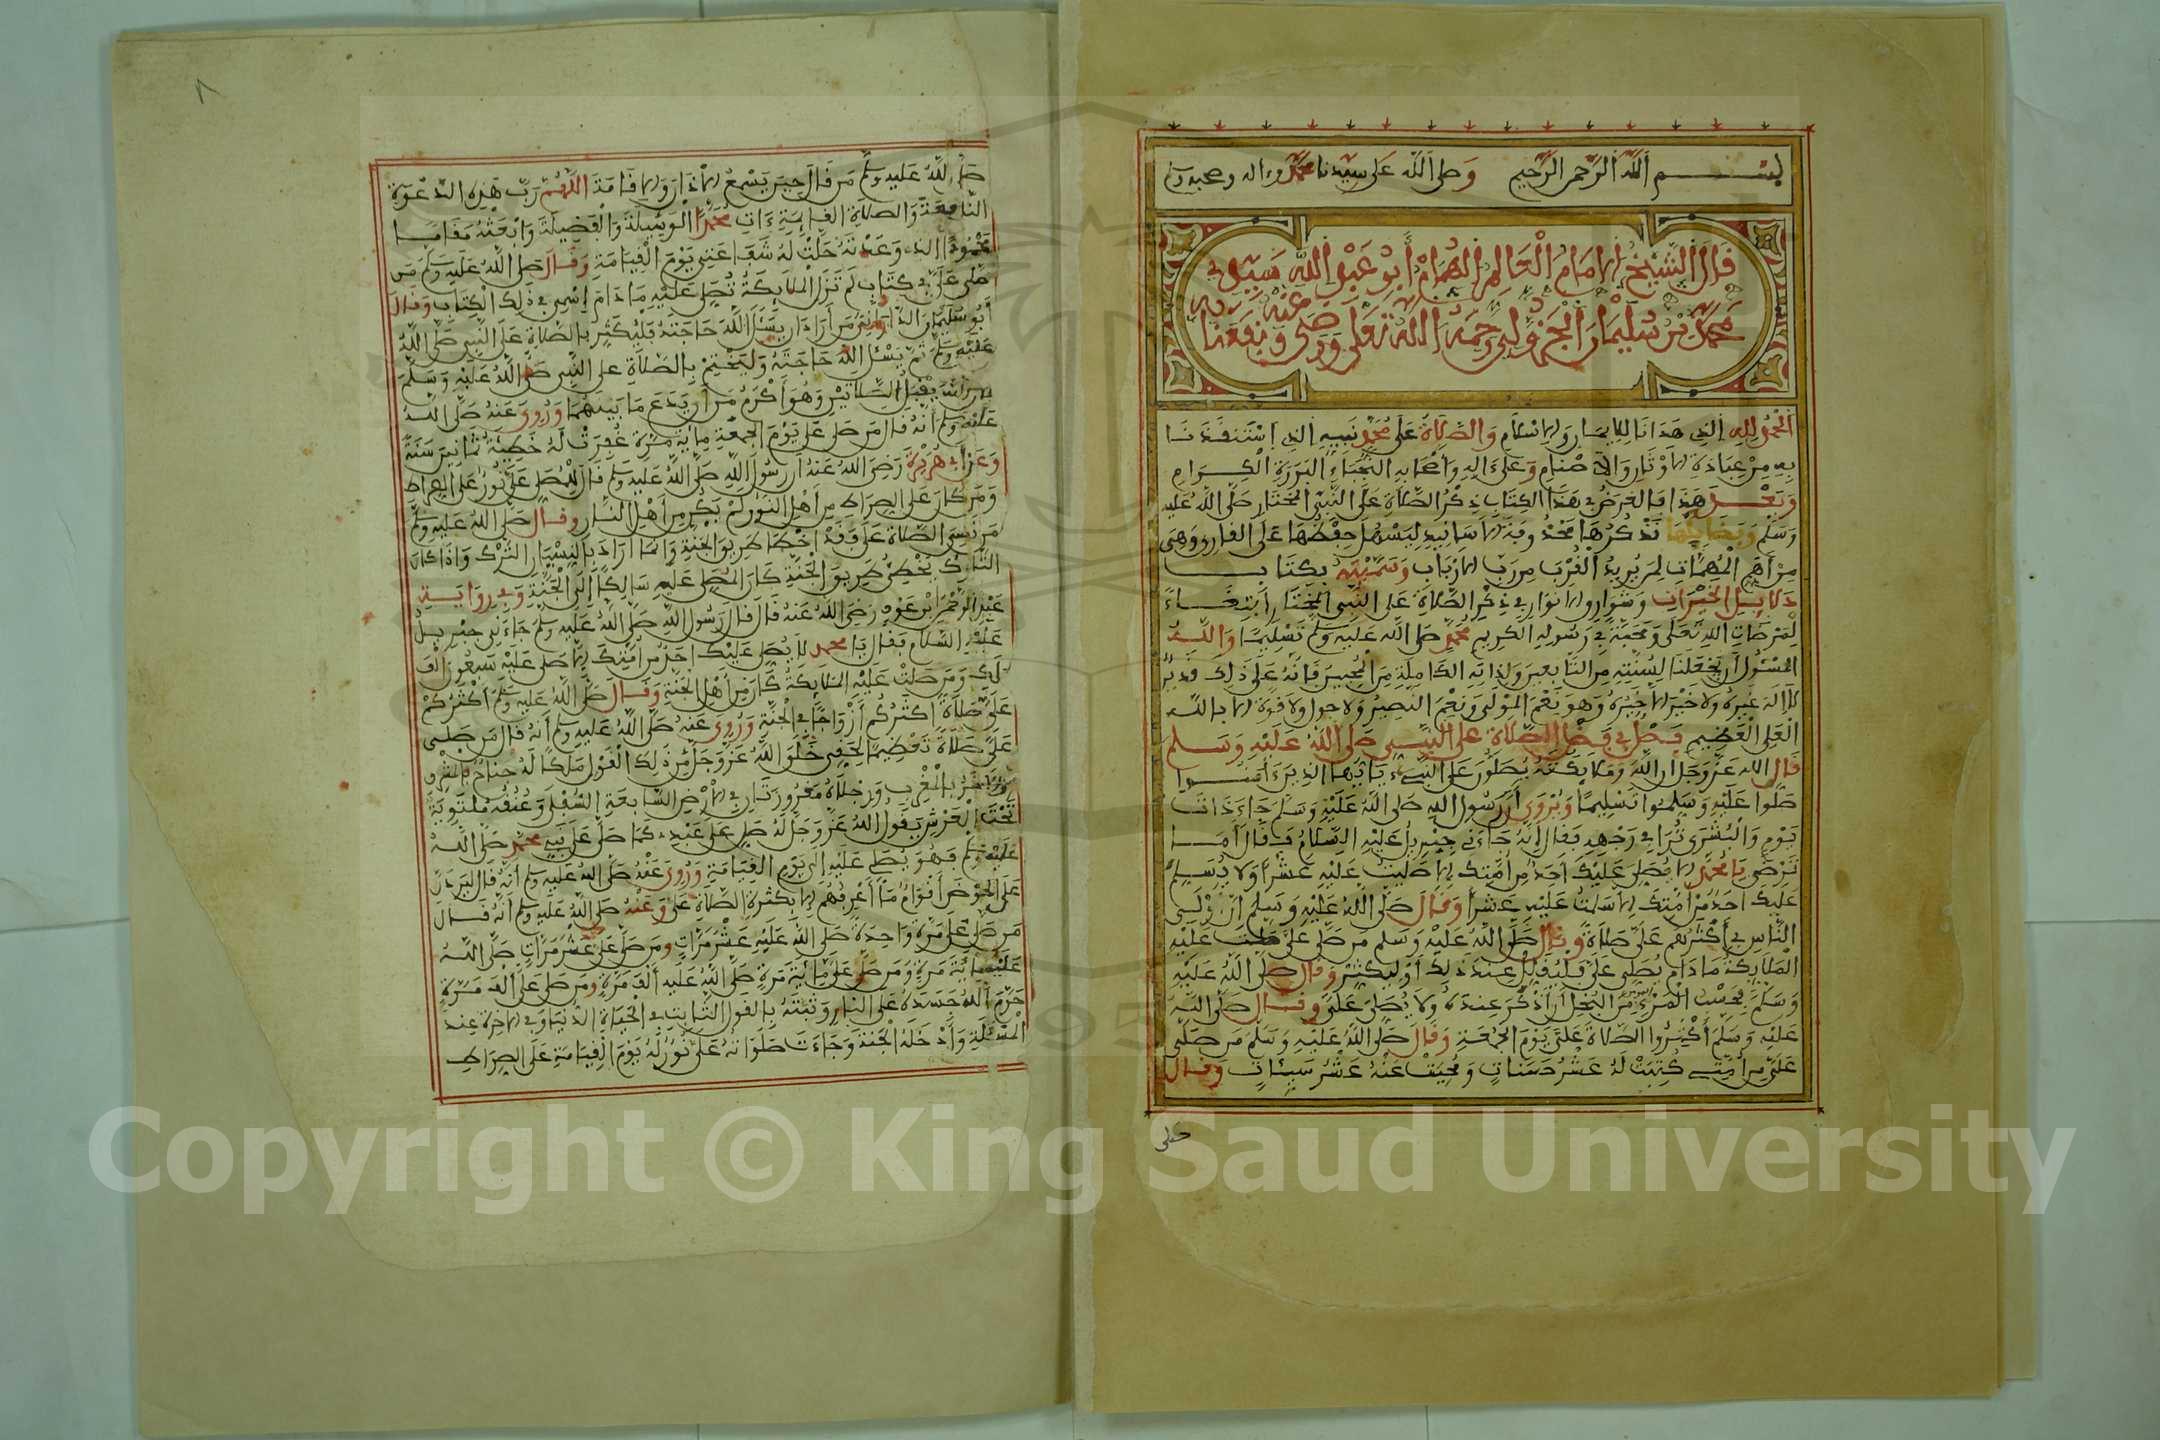 بسم الله الرحمن الرحيم وصلى الله على سيدنا محمد وءاله وصحبه وسلم
قال الشيخ الامام العالم الهمام أبو عبد الله سيدي
محمد بن سليمان الجزولي رحمه الله تعالى ورضي عنه ونفعنا به
الحمد لله الذي هدانا للايمان والاسلام والصلاة على محمد نبيه الذي استنقذنا
به من عبادة الاوثان والاصنام وعلى اله وأصحابه النجباء البررة الكرام
وبعد هذا فالغرض في هذا الكتاب ذكر الصلاة على النبي المختار صلى الله عليه
وسلم وفضائلها نذكرها محذوفة الاسانيد ليسهل حفظها على القارئ وهي
من أهم المهمات لمن يريد القرب من رب الارباب وسميته بكتاب
دلايل الخيرات وشوارق الانوار في ذكر الصلاة على النبي المختار ابتغاء
لمرضات الله تعلى ومحبة في رسوله الكريم محمد صلى الله عليه وسلم تسليما والله
المسئول أن يجعلنا لسنته من التابعين ولذاته الكاملة من المحبين فانه على ذلك قدير
لا اله غيره ولا خير الا خيره وهو نعم المولى ونعم النصير ولا حول ولا قوة الا بالله
العلي العظيم فصل في فضل الصلاة على النبي صلى الله عليه وسلم
قال الله عز وجل ان الله وملايكته يصلون على النبيء يايها الذين ءامنوا
صلوا عليه وسلموا تسليما ويروى أن رسول الله صلى الله عليه وسلم جاء ذات
يوم والبشرى ترا في وجهه فقال إنه جاءني جبريل عليه السلام فقال أما
ترضى يا محمد ان لا يصلي عليك أحد من أمتك الا صليت عليه عشرا ولا يسلم
عليك أحد من أمتك الا سلمت عليه عشرا وقال صلى الله عليه وسلم ان أولى
الناس بي أكثرهم علي صلاة وقال صلى الله عليه وسلم من صلى علي صلت عليه
الملايكة ما دام يصلي علي فليقلل عند ذلك أو ليكثر وقال صلى الله عليه
وسلم بحسب المرء من البخل أن أذكر عنده ولا يصلي علي وقال صلى الله
عليه وسلم أكثروا الصلاة علي يوم الجمعة وقال صلى الله عليه وسلم من صلى
علي من أمتي كتبت له عشر حسنات ومحيت عنه عشر سيئات وقال
صلى
٨
صلى الله عليه وسلم من قال حين يسمع الاذان والاقامة اللهم رب هذه الدعوة
النافعة والصلاة القايمة ءات محمدا الوسيلة والفضيلة وابعثه مقاما
محمودا الذي وعدته حلت له شفاعتي يوم القيامة وقال صلى الله عليه وسلم من
صلى علي في كتاب لم تزل الملايكة تصلي عليه ما دام إسمي في ذلك الكتاب وقال
أبو سليمان الداراني من أراد ان يسئل الله حاجته فليكثر بالصلاة على النبي صلى الله
عليه وسلم ثم يسئل الله حاجته وليختم بالصلاة على النبي صلى الله عليه وسلم
فإن الله يقبل الصلاتين وهو أكرم من أن يدع ما بينهما وروي عنه صلى الله
عليه وسلم أنه قال من صلى علي يوم الجمعة ماية مرة غفرت له خطيئة ثمانين سنة
وعن أبي هريرة رضي الله عنه أن رسول الله صلى الله عليه وسلم قال للمصلي علي نور على الصراط
ومن كان على الصراط من أهل النور لم يكن من أهل النار وقال صلى الله عليه وسلم
من نسي الصلاة علي فقد اخطا طريق الجنة وانما أراد بالنسيان الترك واذا كان
التارك يخطئ طريق الجنة كان المصلي عليه سالكا إلى الجنة وفي رواية
عبد الرحمن ابن عوف رضي الله عنه قال قال رسول الله صلى الله عليه وسلم جاءني جبريل
عليه السلام فقال يا محمد لا يصلي عليك احد من أمتك الا صلى عليه سبعون الف
ملك ومن صلت عليه الملايكة كان من أهل الجنة وقال صلى الله عليه وسلم أكثركم
علي صلاة أكثركم أزواجا في الجنة وروي عنه صلى الله عليه وسلم أنه قال من صلى
علي صلاة تعظيما لحقي خلق الله عز وجل من ذلك القول ملكا له جناح بالمشرق
والاخر بالمغرب ورجلاه مغرورتان في الارض السابعة السفلى وعنقه ملتوية
تحت العرش يقول الله عز وجل له صل على عبدي كما صلى على نبيي محمد صلى الله
عليه وسلم فهو يصلي عليه الى يوم القيامة وروي عنه صلى الله عليه وسلم أنه قال ليردن
على الحوض أقوام ما أعرفهم الا بكثرة الصلاة علي وعنه صلى الله عليه وسلم أنه قال
من صلى علي مرة واحدة صلى الله عليه عشر مرات ومن صلى علي عشر مرات صلى الله
عليه ماية مرة ومن صلى علي ماية مرة صلى الله عليه ألف مرة ومن صلى علي الف مرة
حرم الله جسده على النار وثبته بالقول الثابت في الحياة الدنيا وفي الاخرة عند
المسئلة وأدخله الجنة وجاءت صلواته علي نور له يوم القيامة على الصراط
Copyright © King Saud University